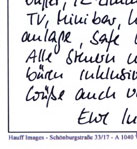 TV, Minibar,
anlage, Safe
Alle Steuern u
büren inklusiv
Grüße auch v
Eure In
Hauff Images - Schönburgstraße 33/17 - A 1040